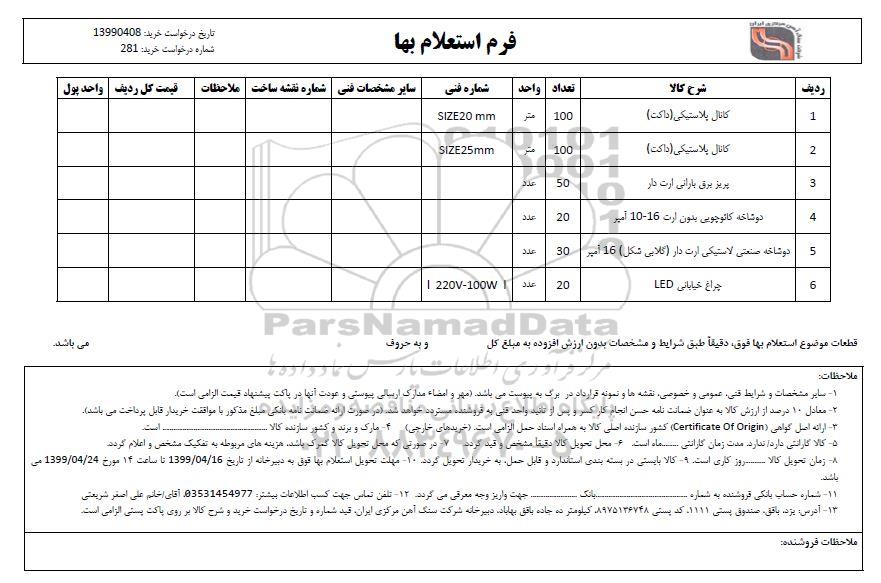 تاریخ درخواست خرید: 13990408
شماره درخواست خرید: 281
فرم استعلام بها
ردیف شرح کالا تعداد واحد شماره فنی سایر مشخصات فنی شماره نقشه ساخت ملاحظات قیمت کل ردیف واحد پول
1 کانال پلاستیکی(داکت) 100 متر SIZE20 mm
2 کانال پلاستیکی(داکت) 100 متر SIZE25mm
3 پریز برق بارانی ارت دار 50 عدد
4 دوشاخه کائوچویی بدون ارت 16-10 آمپر 20 عدد
5 دوشاخه صنعتی لاستیکی ارت دار (گلابی شکل) 16 آمپر 30 عدد
6 چراغ خیابانی LED 20 عدد | 220V-100W |
ParsNamadData
قطعات موضوع استعلام بها فوق، دقیقاً طبق شرایط و مشخصات بدون ارزش افزوده به مبلغ کل و به حروف می باشد.
ملاحظات:
۱- سایر مشخصات و شرایط فنی، عمومی و خصوصی، نقشه ها و نمونه قرارداد در برگ به پیوست می باشد. (مهر و امضاء مدارک ارسالی پیوستی و عودت آنها در پاکت پیشنهاد قیمت الزامی است).
۲- معادل ۱۰ درصد از ارزش کالا به عنوان ضمانت نامه حسن انجام کار کسر و پس از تائید واحد فنی به فروشنده مسترد خواهد شد. (در صورت ارائه ضمانت نامه بانکی مبلغ مذکور با موافقت خریدار قابل پرداخت می باشد).
۳- ارائه اصل گواهی (Certificate Of Origin) کشور سازنده اصلی کالا به همراه اسناد حمل الزامی است. (خریدهای خارجی) ۴- مارک و برند و کشور سازنده کالا ........................ است.
۵- کالا گارانتی دارد/ ندارد. مدت زمان گارانتی ........ماه است. ۶- محل تحویل کالا دقیقاً مشخص و قید گردد. ۷- در صورتی که محل تحویل کالا گمرک باشد، هزینه های مربوطه به تفکیک مشخص و اعلام گردد.
۸- زمان تحویل کالا ..........روز کاری است. ۹- کالا بایستی در بسته بندی استاندارد و قابل حمل، به خریدار تحویل گردد. ۱۰- مهلت تحویل استعلام بها فوق به دبیرخانه از تاریخ 1399/04/16 تا ساعت ۱۴ مورخ 1399/04/24 می باشد.
۱۱- شماره حساب بانکی فروشنده به شماره ........................بانک .................... جهت واریز وجه معرفی می گردد. ۱۲- تلفن تماس جهت کسب اطلاعات بیشتر: 03531454977، آقای/خانم علی اصغر شریعتی
۱۳- آدرس: یزد، بافق، صندوق پستی ۱۱۱۱، کد پستی ۸۹۷۵۱۳۶۷۴۸، کیلومتر ده جاده بافق بهاباد، دبیرخانه شرکت سنگ آهن مرکزی ایران، قید شماره و تاریخ درخواست خرید و شرح کالا بر روی پاکت پستی الزامی است.
ملاحظات فروشنده: